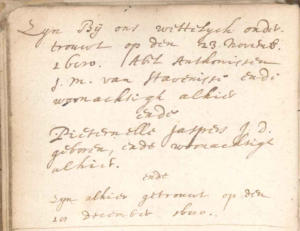 Zyn Bij ons wettelijck ondertrouwt op den 23 Novemb.
Abel Anthonissen
J. m. van Stavenisse ende
woonachtigh alhier
ende
Pieternelle Jaspers J. D.
geboren, ende woonachtigh
alhier.
ende
Zijn alhier getrouwt op den
december